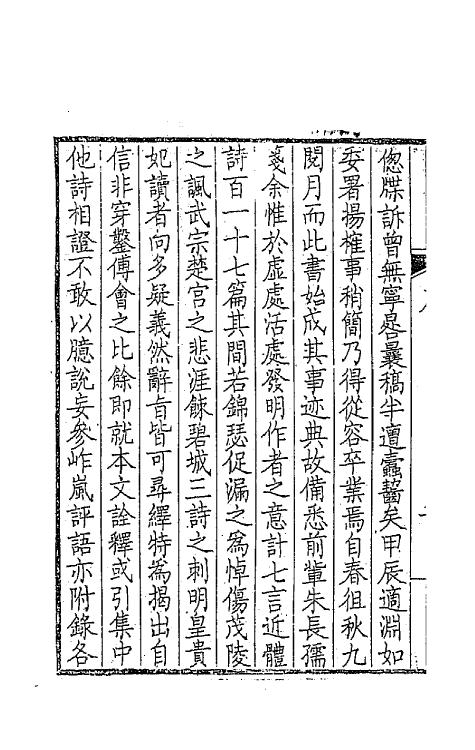 傯牒訴曾無寧晷曩稿半遭蠹齧矣甲辰適淵如
委署揚榷事稍簡乃得從容卒業焉自春徂秋九
閱月而此書始成其事迹典故備悉前輩朱長孺
箋余惟於虛處活處發明作者之意計七言近體
詩百一十七篇其間若錦瑟促漏之為悼傷茂陵
之諷武宗楚宮之悲涯餗碧城三詩之刺明皇貴
妃讀者向多疑義然辭旨皆可尋繹特為揭出自
信非穿鑿傅會之比餘即就本文詮釋或引集中
他詩相證不敢以臆說妄參岞嵐評語亦附錄各